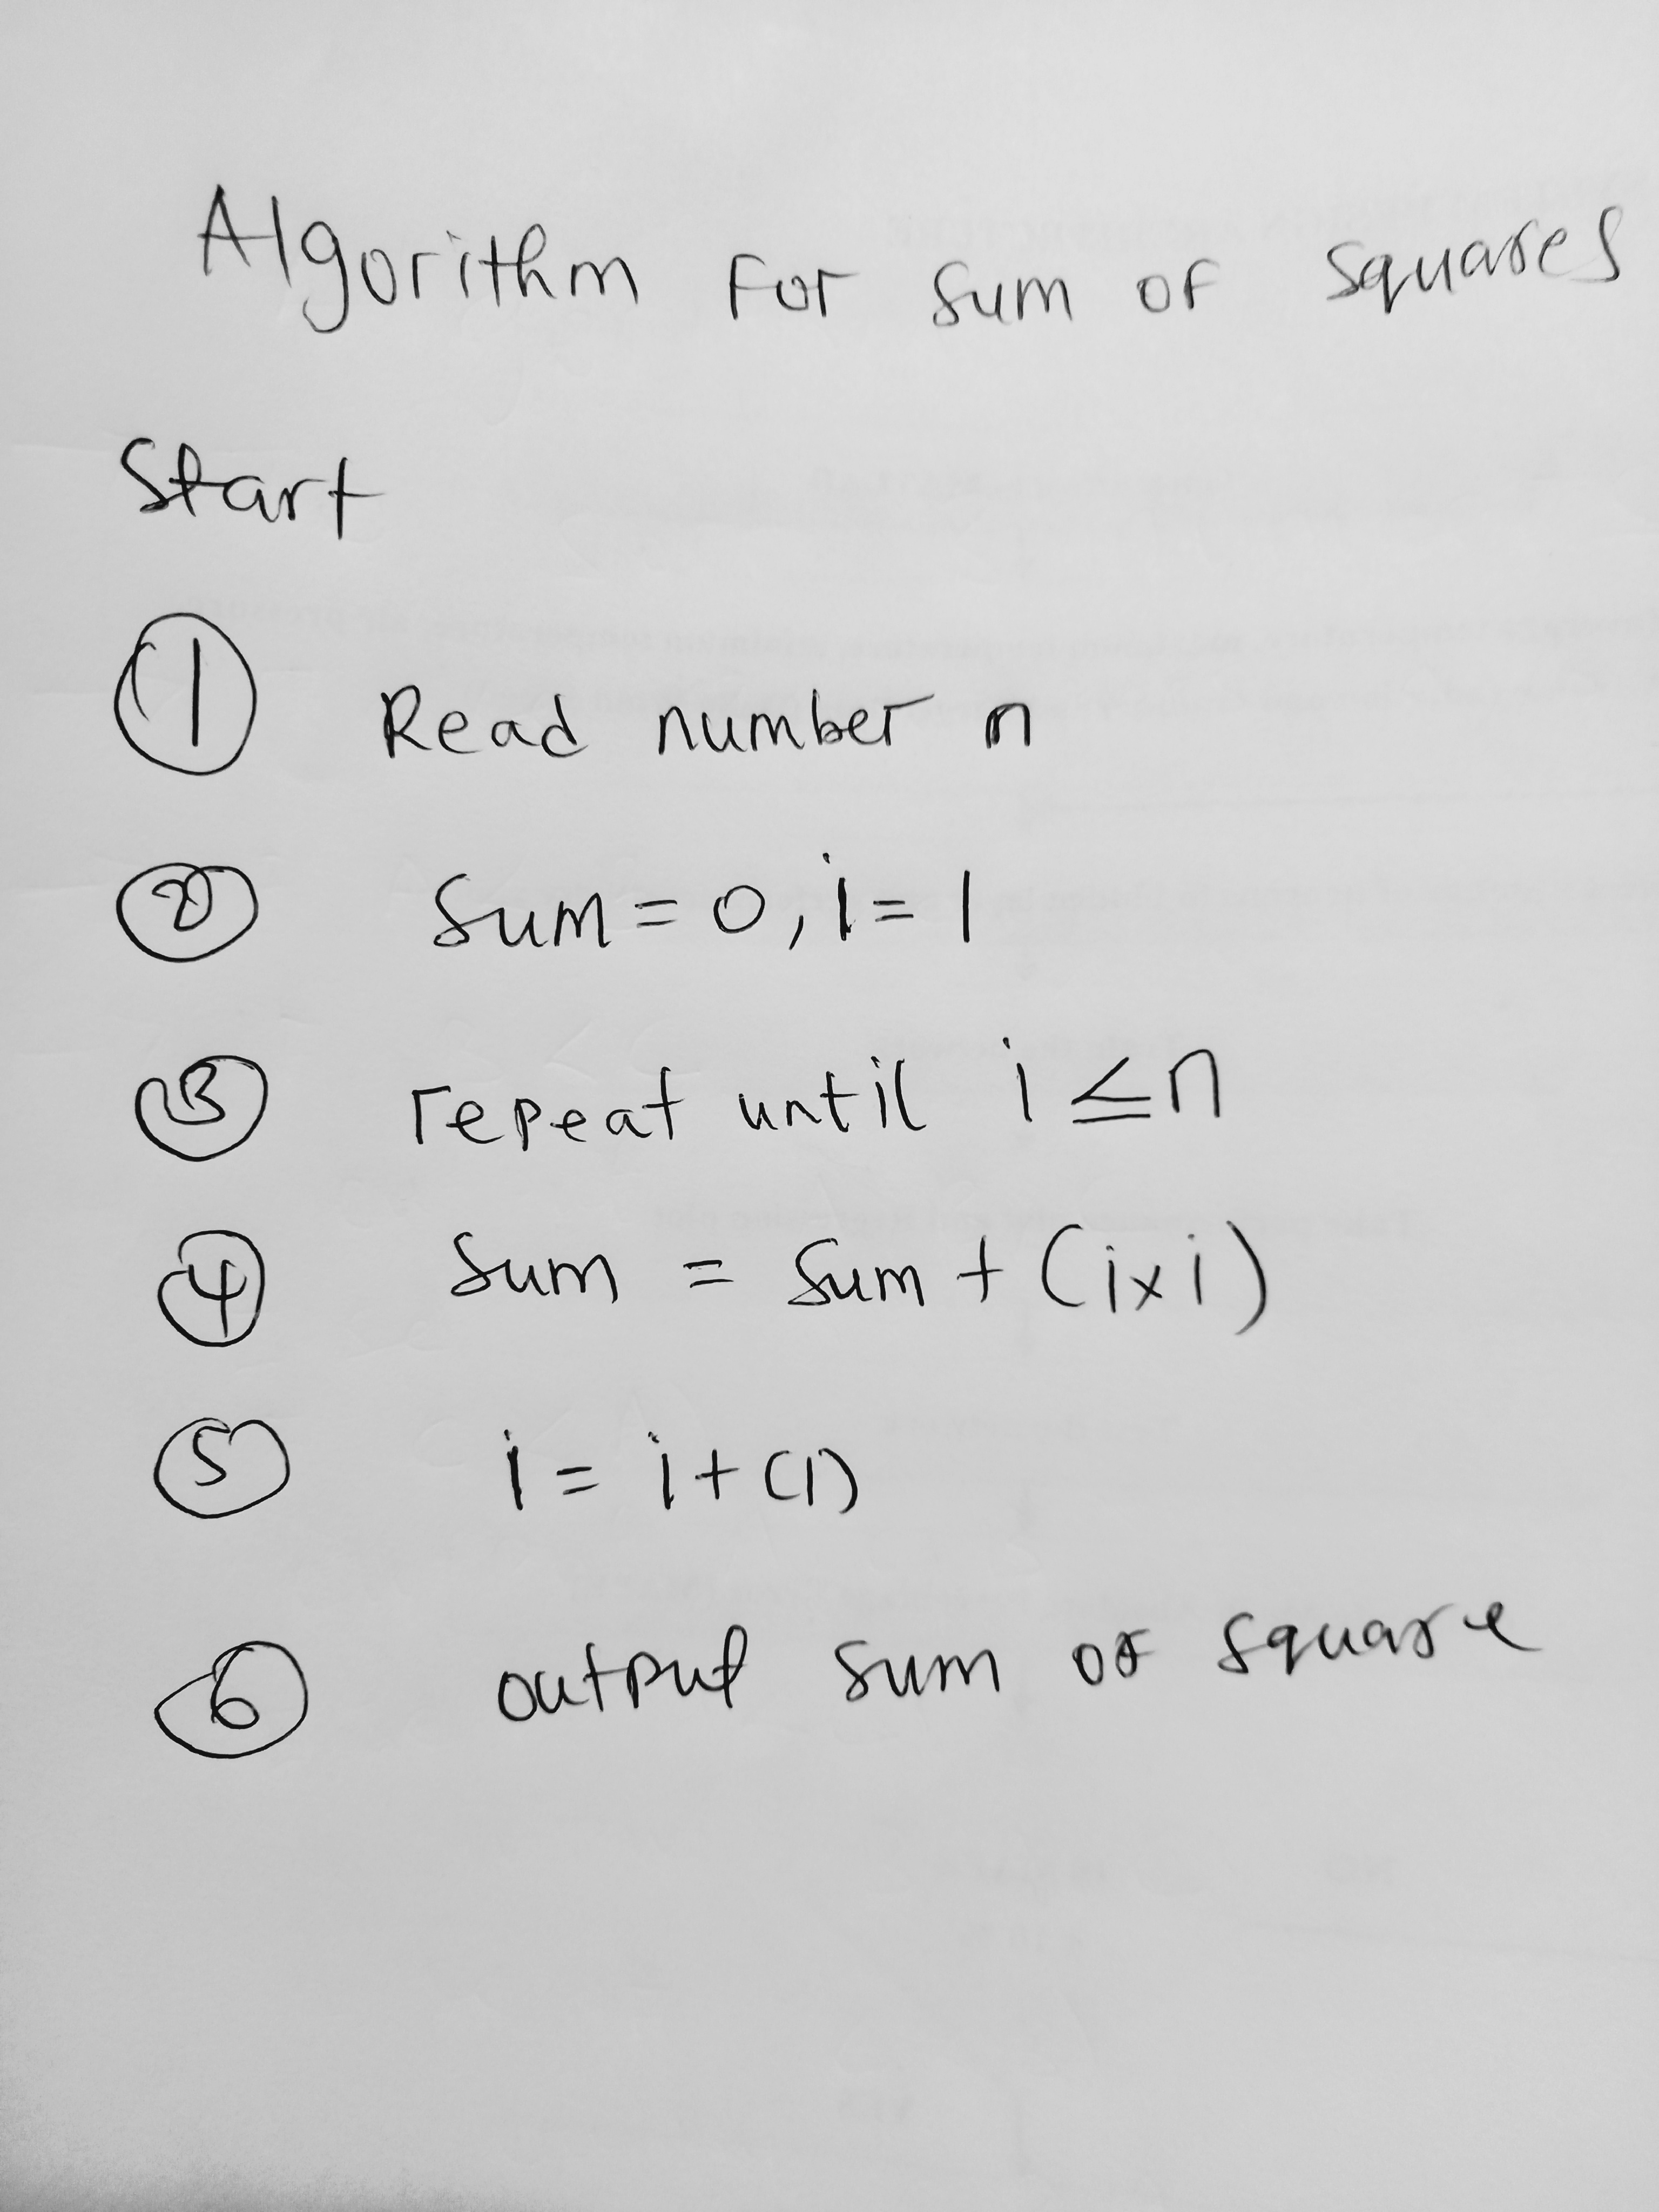 Algorithm For Sum of squares
Start
1 Read number n
2 Sum = 0, i = 1
3 repeat until i ≤ n
4 Sum = Sum + (i x i)
5 i = i + (1)
6 output sum of square